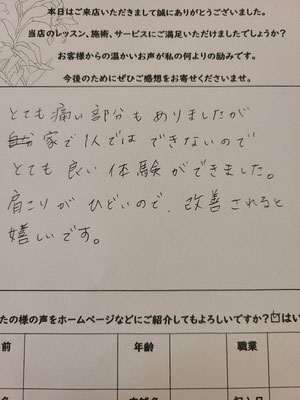 本日はご来店いただきまして誠にありがとうございました。
当店のレッスン、施術、サービスにご満足いただけましたでしょうか?
お客様からの温かいお声が私の何よりの励みです。
今後のためにぜひご感想をお寄せくださいませ。
とても痛い部分もありましたが
家で1人では できないので
とても 良い 体験ができました。
肩こりが ひどいので、改善されると
嬉しいです。
たの様の声をホームページなどにご紹介してもよろしいですか?☑はい
前 年齢 職業